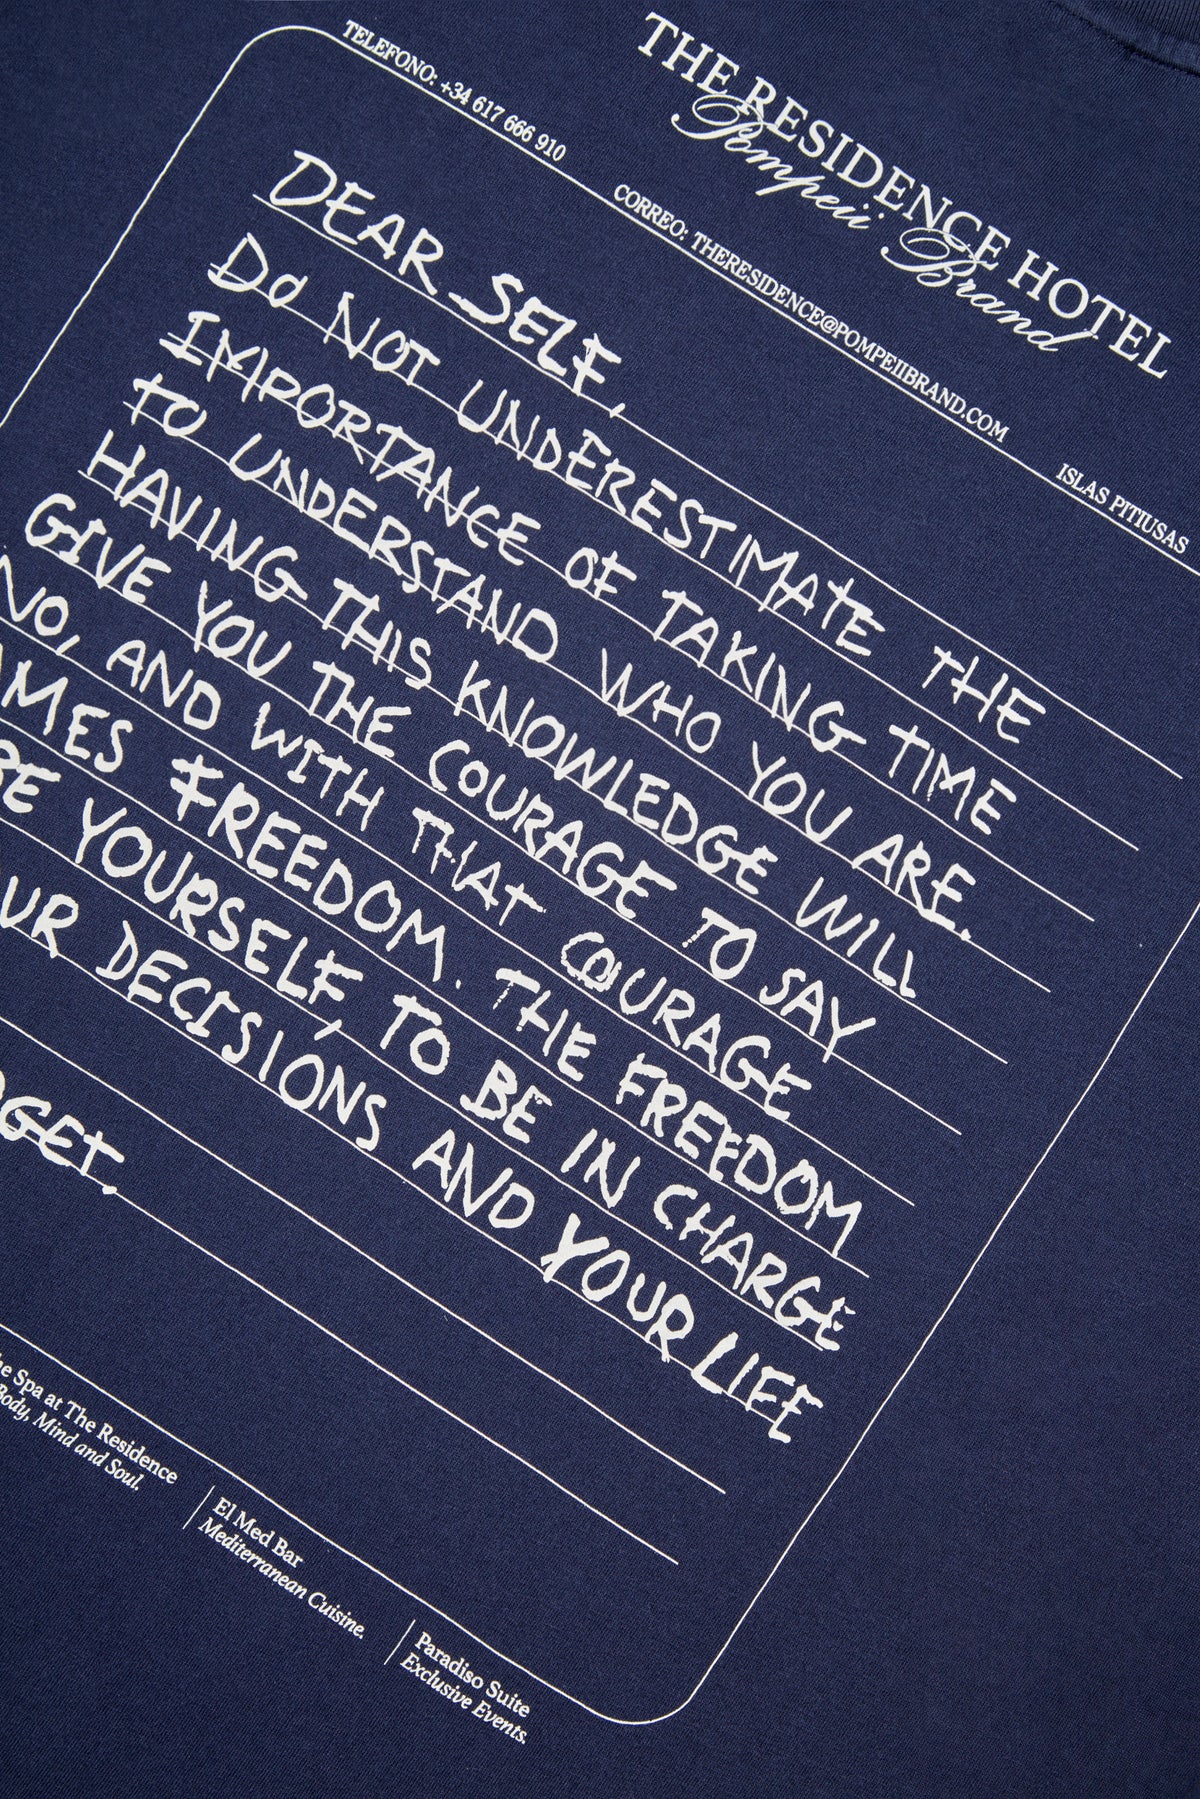 THE RESIDENCE HOTEL
Pompeii Brand
TELEFONO: +34 617 666 910
CORREO: THERESIDENCE@POMPEIIBRAND.COM
ISLAS PITIUSAS
DEAR SELF,
DO NOT UNDERESTIMATE THE
IMPORTANCE OF TAKING TIME
TO UNDERSTAND WHO YOU ARE.
HAVING THIS KNOWLEDGE WILL
GIVE YOU THE COURAGE TO SAY
NO, AND WITH THAT COURAGE
AMES FREEDOM. THE FREEDOM
BE YOURSELF, TO BE IN CHARGE
UR DECISIONS AND YOUR LIFE
GET.
he Spa at The Residence
Body, Mind and Soul.
El Med Bar
Mediterranean Cuisine.
Paradiso Suite
Exclusive Events.